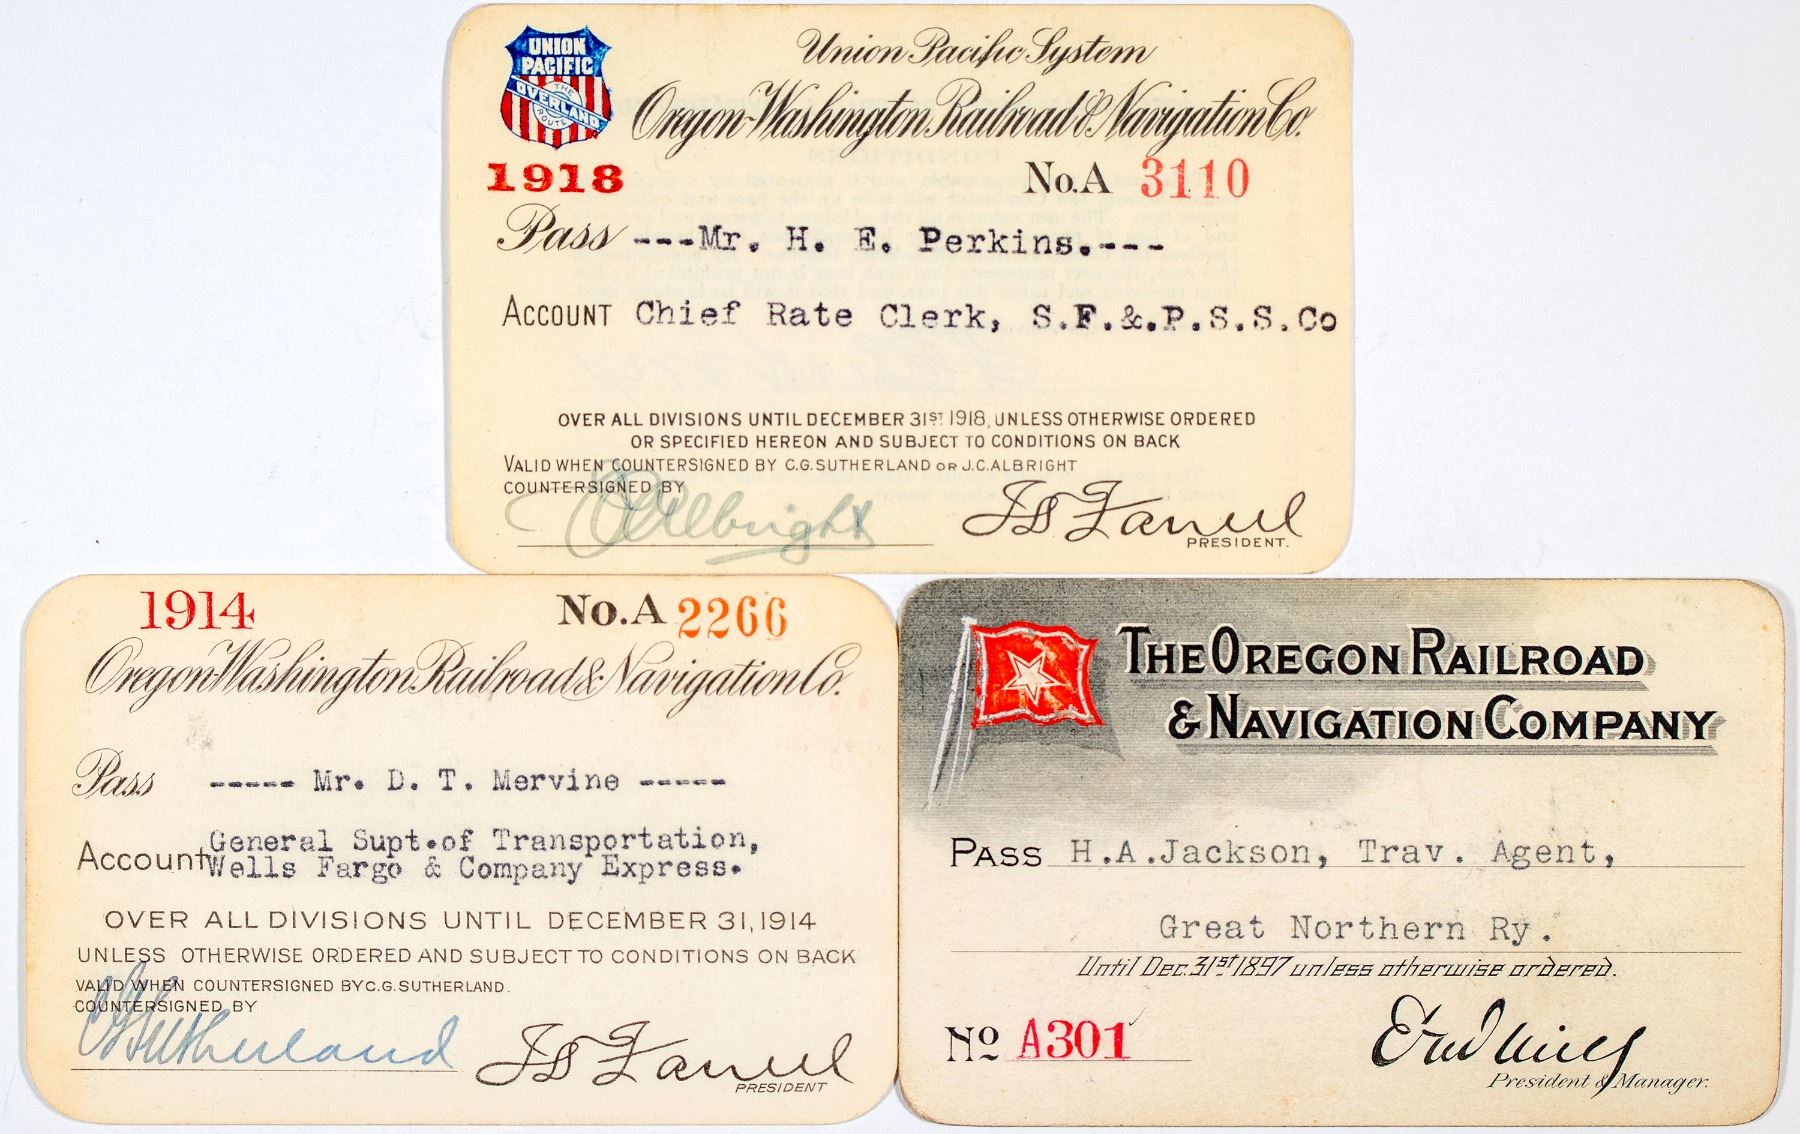 UNION
PACIFIC
THE
OVERLAND
ROUTE
Union Pacific System
Oregon-Washington Railroad & Navigation Co.
1918
No.A 3110
Pass ---Mr. H. E. Perkins.---
ACCOUNT Chief Rate Clerk, S.F.&.P.S.S.Co
OVER ALL DIVISIONS UNTIL DECEMBER 31ST 1918, UNLESS OTHERWISE ORDERED
OR SPECIFIED HEREON AND SUBJECT TO CONDITIONS ON BACK
VALID WHEN COUNTERSIGNED BY C.G.SUTHERLAND OR J.C.ALBRIGHT
COUNTERSIGNED BY
JCAlbright
JD Farrell
PRESIDENT.
1914
No.A 2266
Oregon-Washington Railroad & Navigation Co.
Pass ----- Mr. D. T. Mervine -----
Account General Supt.of Transportation,
Wells Fargo & Company Express.
OVER ALL DIVISIONS UNTIL DECEMBER 31, 1914
UNLESS OTHERWISE ORDERED AND SUBJECT TO CONDITIONS ON BACK
VALID WHEN COUNTERSIGNED BY C.G.SUTHERLAND.
COUNTERSIGNED BY
CGSutherland
JD Farrell
PRESIDENT
THE OREGON RAILROAD
& NAVIGATION COMPANY
PASS H.A.Jackson, Trav. Agent,
Great Northern Ry.
Until Dec. 31st 1897 unless otherwise ordered.
No A301
President & Manager.